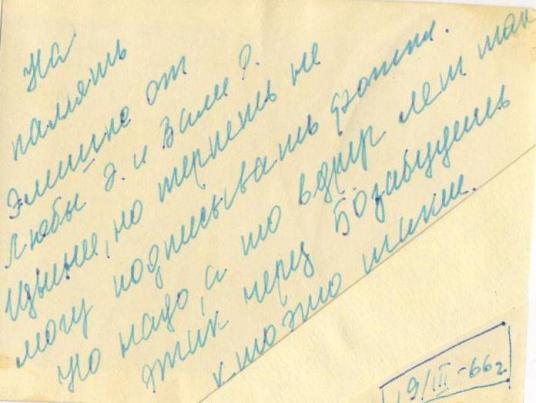 На
память
Эмише от
Любы З. и Вали?.
Извини, но терпеть не
могу подписывать фотки.
Но надо, а то вдруг лет так
этик через 50 забудешь
кто это такие.
19/III-66г